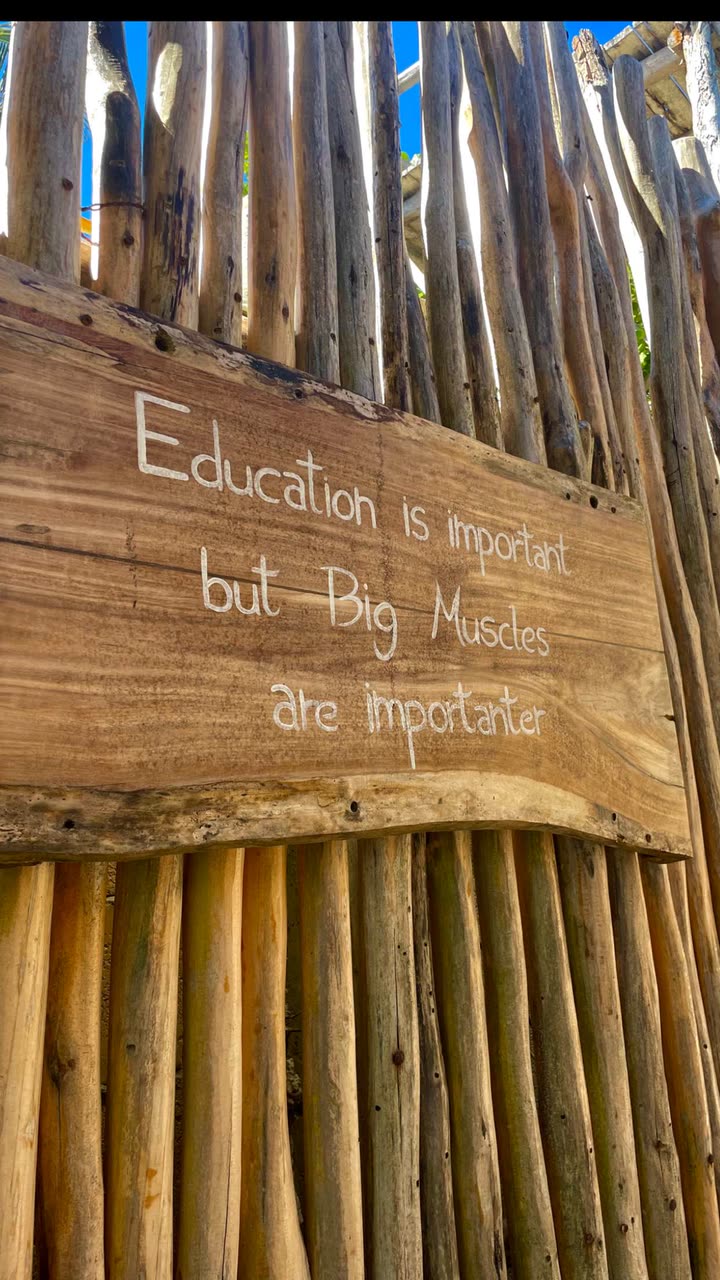 Education is important
but Big Muscles
are importanter